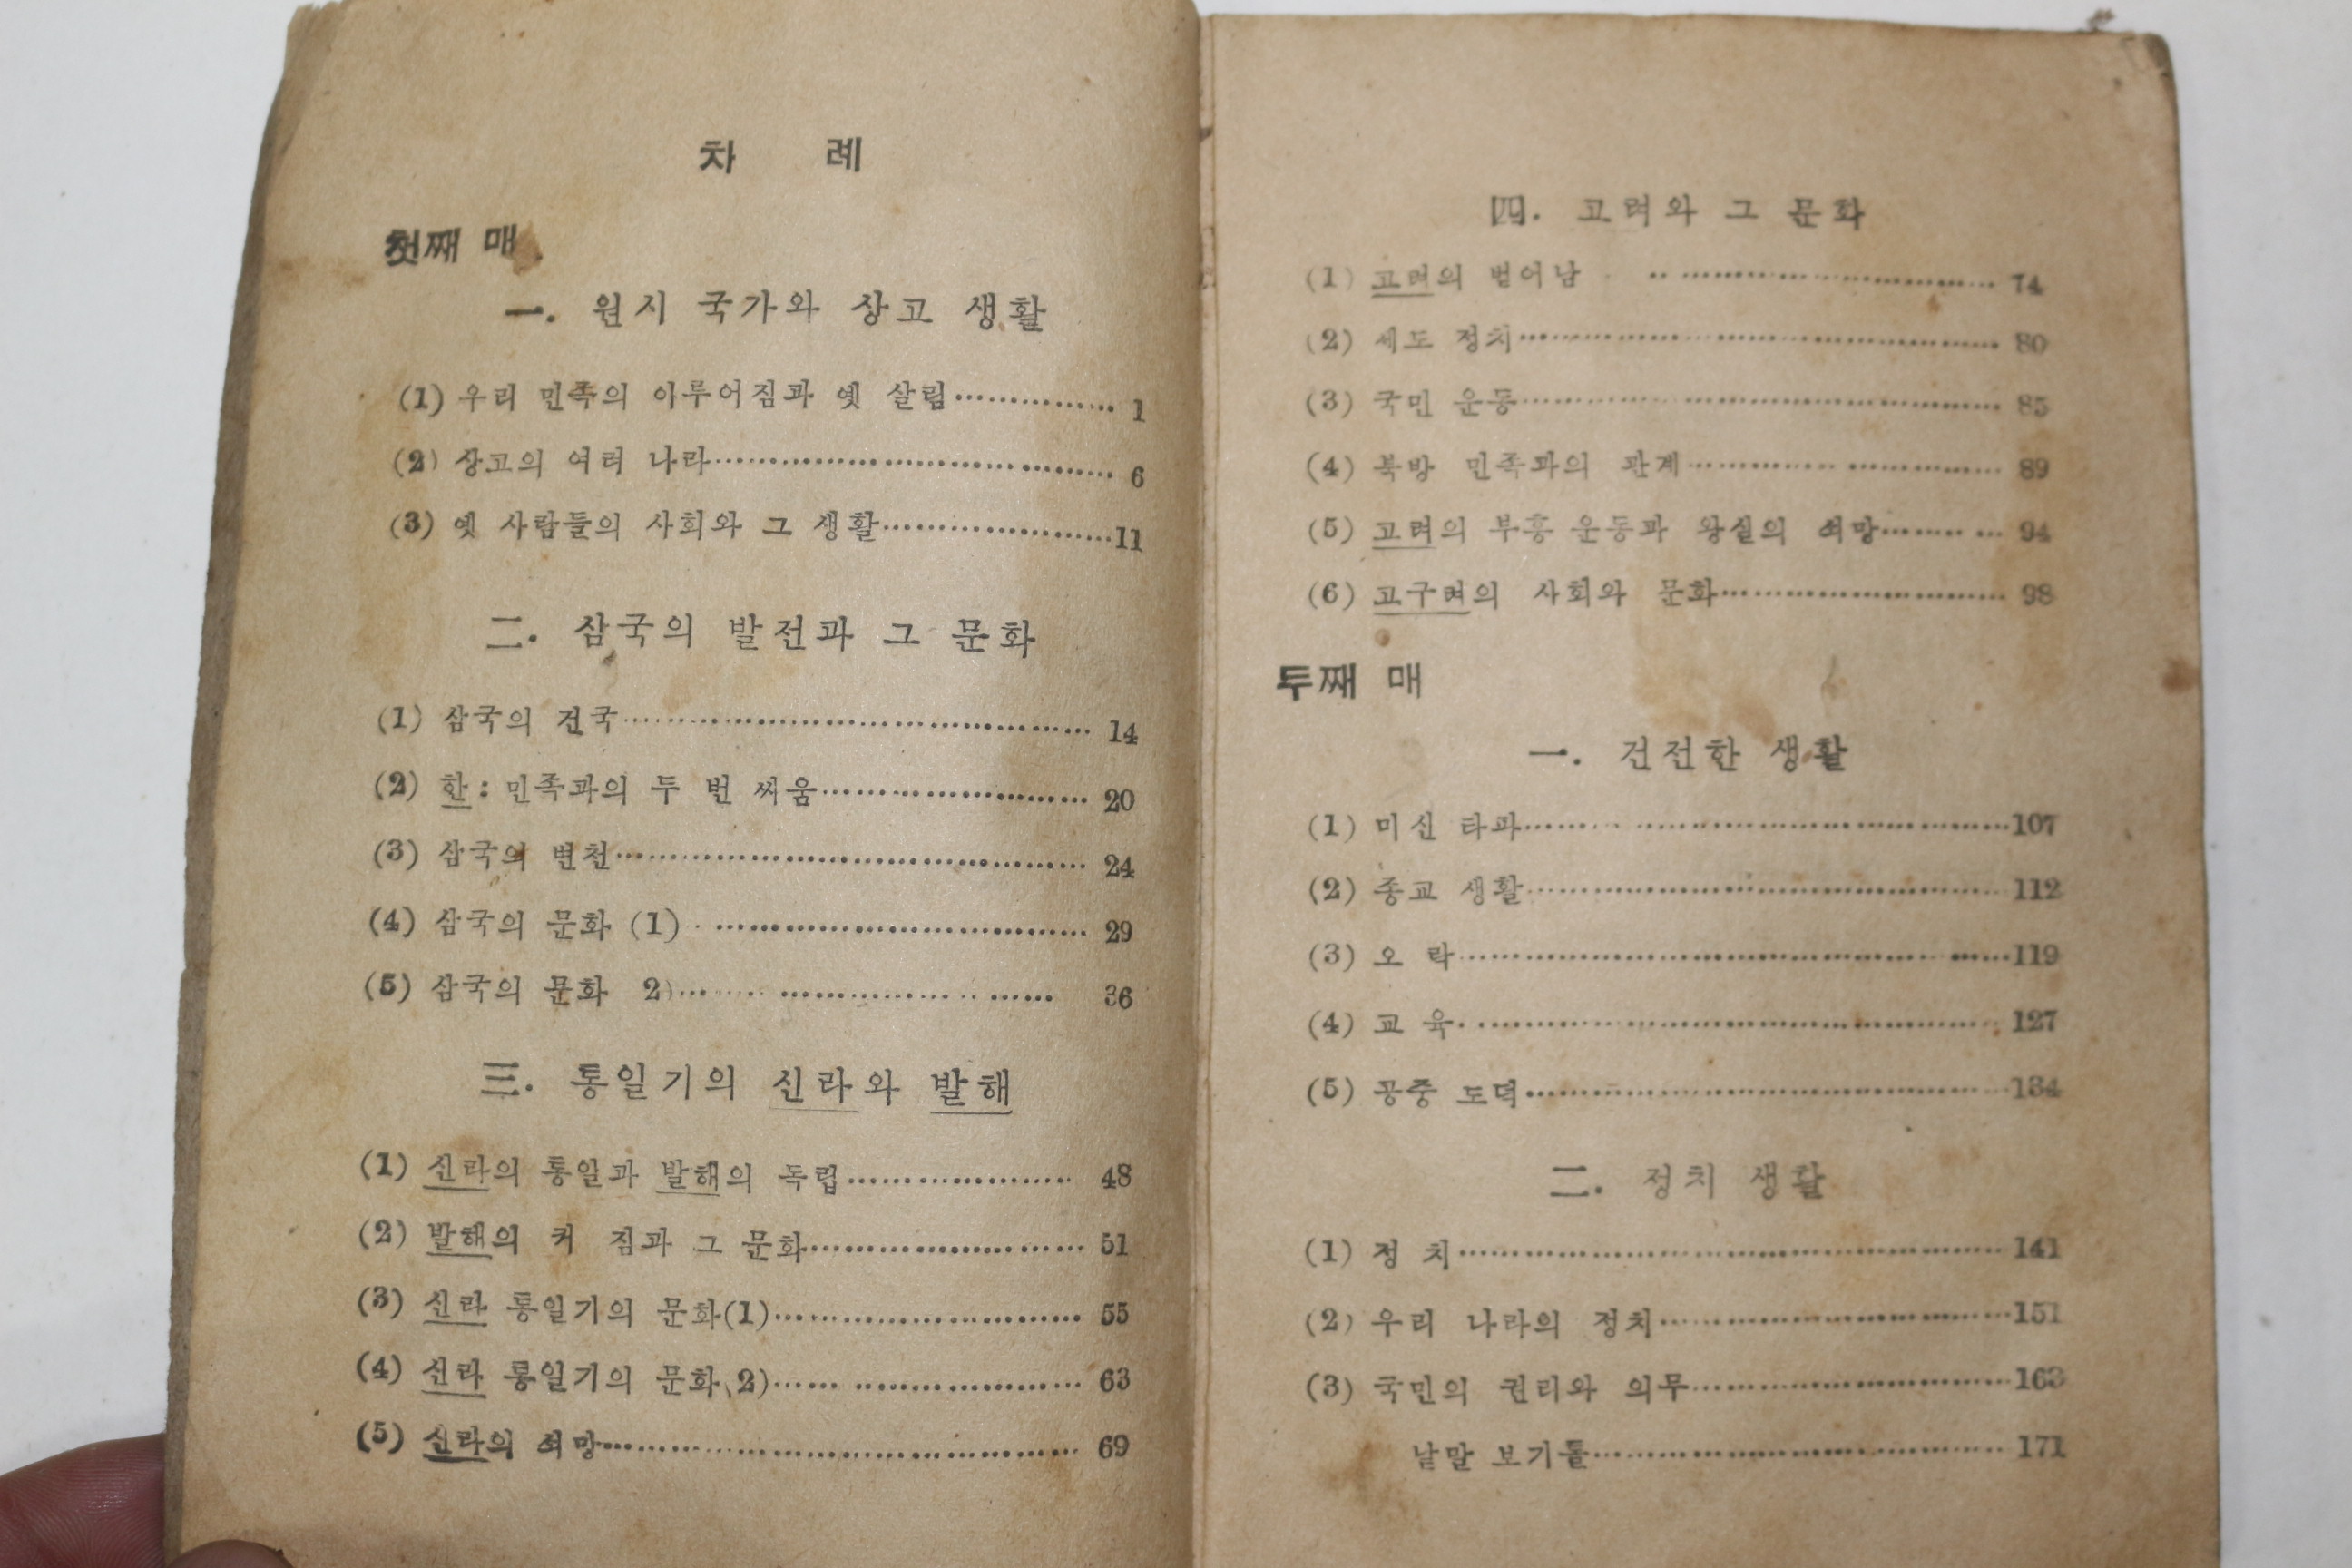 차 례
첫째 매
一. 원시 국가와 상고 생활
(1) 우리 민족의 이루어짐과 옛 살림…………… 1
(2) 상고의 여러 나라………………………… 6
(3) 옛 사람들의 사회와 그 생활…………………11
二. 삼국의 발전과 그 문화
(1) 삼국의 건국………………………………… 14
(2) 한: 민족과의 두 번 싸움………………… 20
(3) 삼국의 변천………………………………… 24
(4) 삼국의 문화 (1)………………………… 29
(5) 삼국의 문화 2)………………………… 36
三. 통일기의 신라와 발해
(1) 신라의 통일과 발해의 독립………………… 48
(2) 발해의 커 짐과 그 문화………………… 51
(3) 신라 통일기의 문화(1)………………… 55
(4) 신라 통일기의 문화(2)………………… 63
(5) 신라의 쇠망………………………………… 69
四. 고려와 그 문화
(1) 고려의 벋어남………………………… 74
(2) 세도 정치………………………………… 80
(3) 국민 운동………………………………… 85
(4) 북방 민족과의 관계………………… 89
(5) 고려의 부흥 운동과 왕실의 쇠망………… 94
(6) 고구려의 사회와 문화………………… 98
두째 매
一. 건전한 생활
(1) 미신 타파…………………………………107
(2) 종교 생활…………………………………112
(3) 오 락…………………………………119
(4) 교 육…………………………………127
(5) 공중 도덕…………………………………134
二. 정치 생활
(1) 정 치…………………………………141
(2) 우리 나라의 정치…………………………151
(3) 국민의 권리와 의무…………………………163
낱말 보기틀………………………… 171